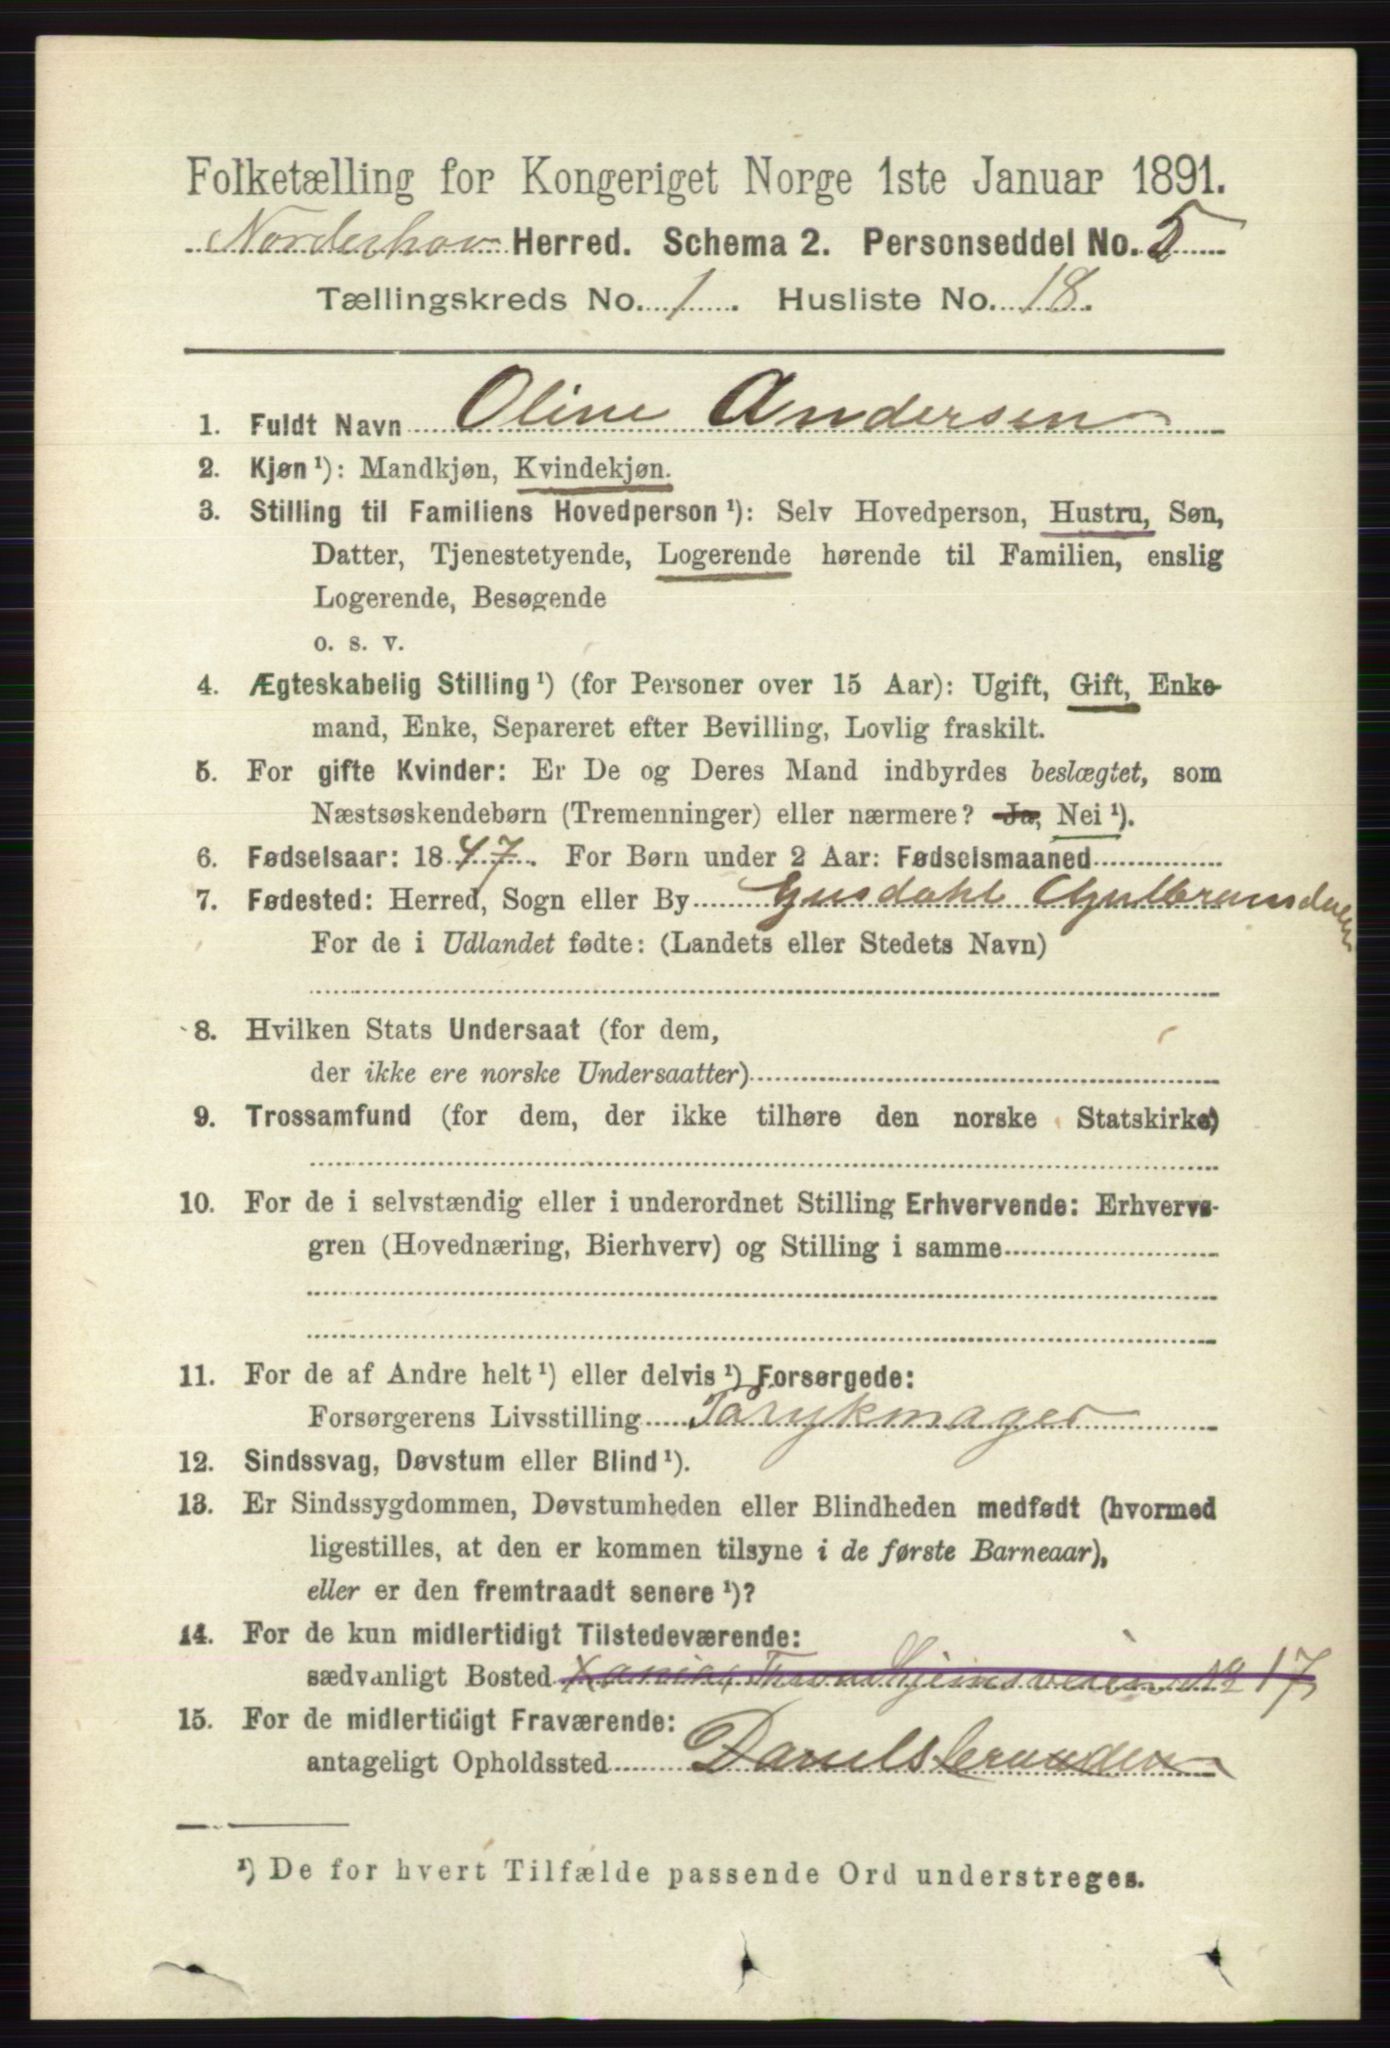 Folketælling for Kongeriget Norge 1ste Januar 1891.
Norderhov Herred. Schema 2. Personseddel No. 5
Tællingskreds No. 1. Husliste No. 18.
1. Fuldt Navn Oline Andersen
2. Kjøn ¹): Mandkjøn, Kvindekjøn.
3. Stilling til Familiens Hovedperson ¹): Selv Hovedperson, Hustru, Søn,
Datter, Tjenestetyende, Logerende hørende til Familien, enslig
Logerende, Besøgende
o. s. v.
4. Ægteskabelig Stilling ¹) (for Personer over 15 Aar): Ugift, Gift, Enke-
mand, Enke, Separeret efter Bevilling, Lovlig fraskilt.
5. For gifte Kvinder: Er De og Deres Mand indbyrdes beslægtet, som
Næstsøskendebørn (Tremenninger) eller nærmere? Ja, Nei ¹).
6. Fødselsaar: 1847. For Børn under 2 Aar: Fødselsmaaned
7. Fødested: Herred, Sogn eller By Gusdahl Gulbransdalen
For de i Udlandet fødte: (Landets eller Stedets Navn)
8. Hvilken Stats Undersaat (for dem,
der ikke ere norske Undersaatter)
9. Trossamfund (for dem, der ikke tilhøre den norske Statskirke)
10. For de i selvstændig eller i underordnet Stilling Erhvervende: Erhvervs-
gren (Hovednæring, Bierhverv) og Stilling i samme
11. For de af Andre helt ¹) eller delvis ¹) Forsørgede:
Forsørgerens Livsstilling
12. Sindssvag, Døvstum eller Blind ¹).
13. Er Sindssygdommen, Døvstumheden eller Blindheden medfødt (hvormed
ligestilles, at den er kommen tilsyne i de første Barneaar),
eller er den fremtraadt senere ¹)?
14. For de kun midlertidigt Tilstedeværende:
sædvanligt Bosted Xania, Throndhjemsveien No 17
15. For de midlertidigt Fraværende:
antageligt Opholdssted
¹) De for hvert Tilfælde passende Ord understreges.